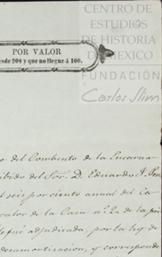 CENTRO DE
ESTUDIOS
DE HISTORIA
DE MÉXICO
FUNDACIÓN
Carlos Slim
POR VALOR
desde 20$ y que no llegue á 100.
o del Combento de la Encarna
ibido del Sor. D. Eduardo
l seis por ciento anual del Ca
valor de la Casa nº 2 de la
fué adjudicada, por la ley de
desamortizacion, y corresponde